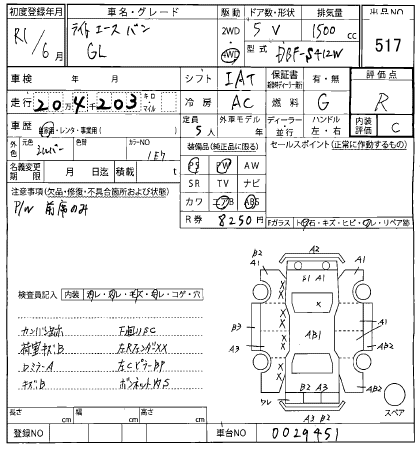 初度登録年月 車名・グレード 駆動 ドア数・形状 排気量 出品NO
R1/6月 ライト エース バン 2WD 5 V 1500 cc 517
GL 4WD 型式 DBF-S412W
車検 年 月 シフト IAT 保証書 有・無 評価点
走行 20万4千203 キロ マイル 冷房 AC 燃料 G R
車歴 自家用・レンタ・事業用( ) 定員 5人 外車モデル ディーラー 並行 ハンドル 左・右 内装評価 C
外色 シルバー 色替 カラーNO 1E7 装備品(純正品に限る) セールスポイント(正常に作動するもの)
PS PW AW
名義変更期限 月 日迄 積載 t SR TV ナビ
注意事項(欠品・修復・不具合箇所および状態) カワ エアB ABS
P/W 前席のみ R券 8250円 Fガラス
A2
B2 A1 A1 A1
検査員記入 内装 コゲ・穴
カンバン跡 下回りSC B3 AB1 A1
荷室キズB 左Rフェンダー XX A3 AB2
ルミラーA 左CピラーBP
キズB ボンネットMS B2 A3 AB2
ワレ スペア
A3 B2
長さ cm 幅 cm 高さ cm
登録NO 車台NO 0029451